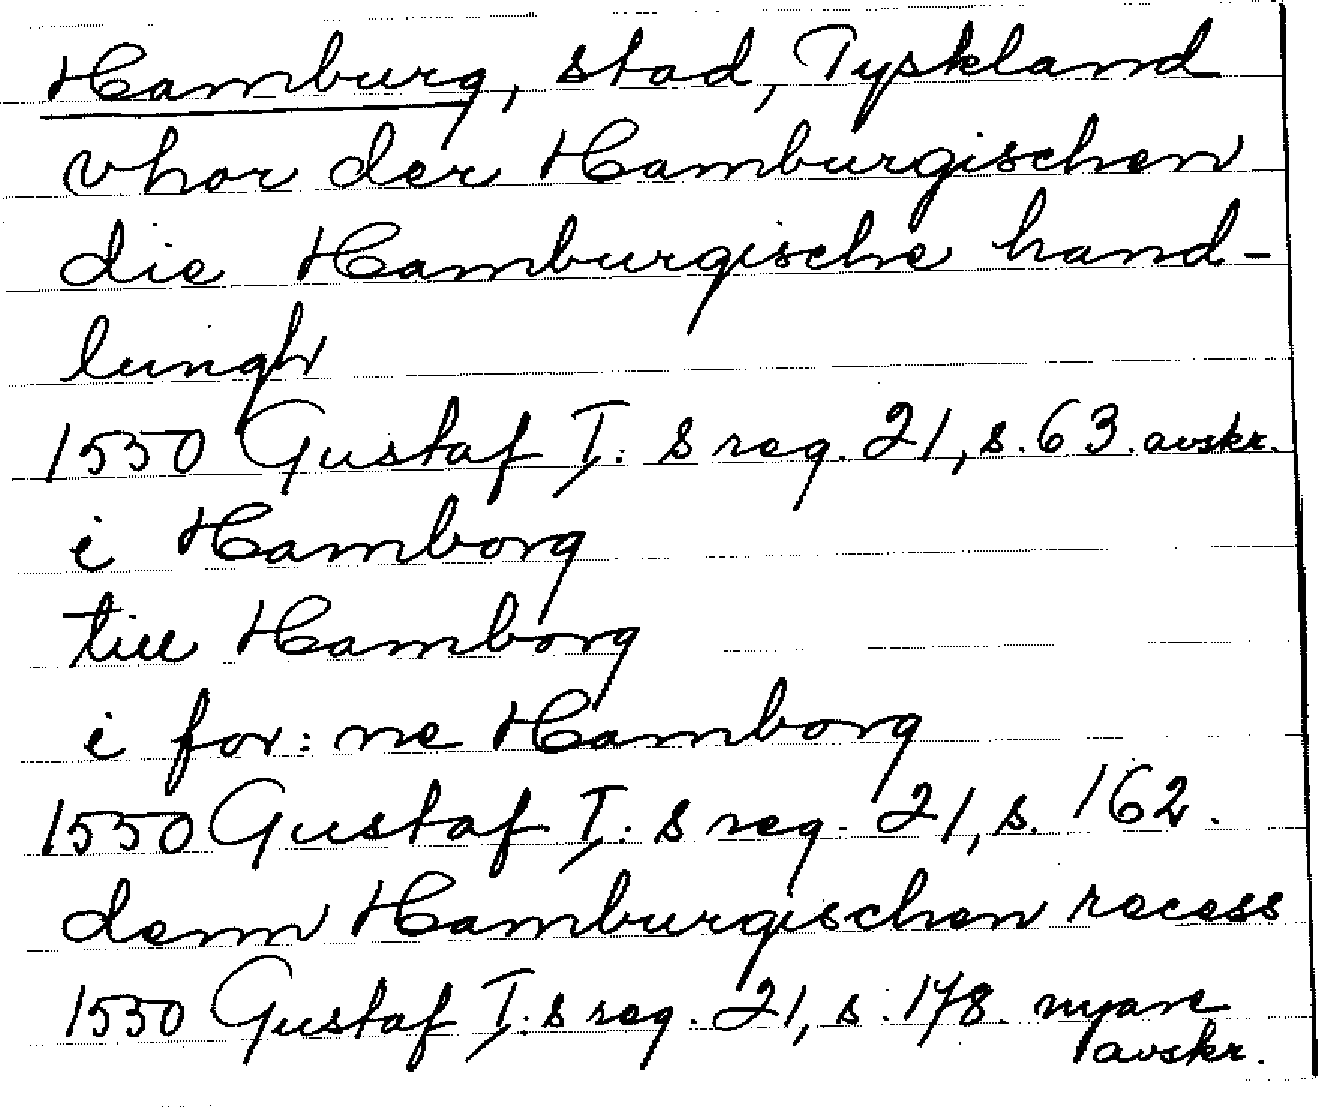 Hamburg, stad, Tyskland
vhor der Hamburgischen
die Hamburgische hand-
lungh
1550 Gustaf I:s reg. 21, s. 63. avskr.
i Hamborg
till Hamborg
i for:ne Hamborg
1550 Gustaf I:s reg. 21, s. 162.
denn Hamburgischen recess
1550 Gustaf I:s reg. 21, s. 178. nyare
avskr.